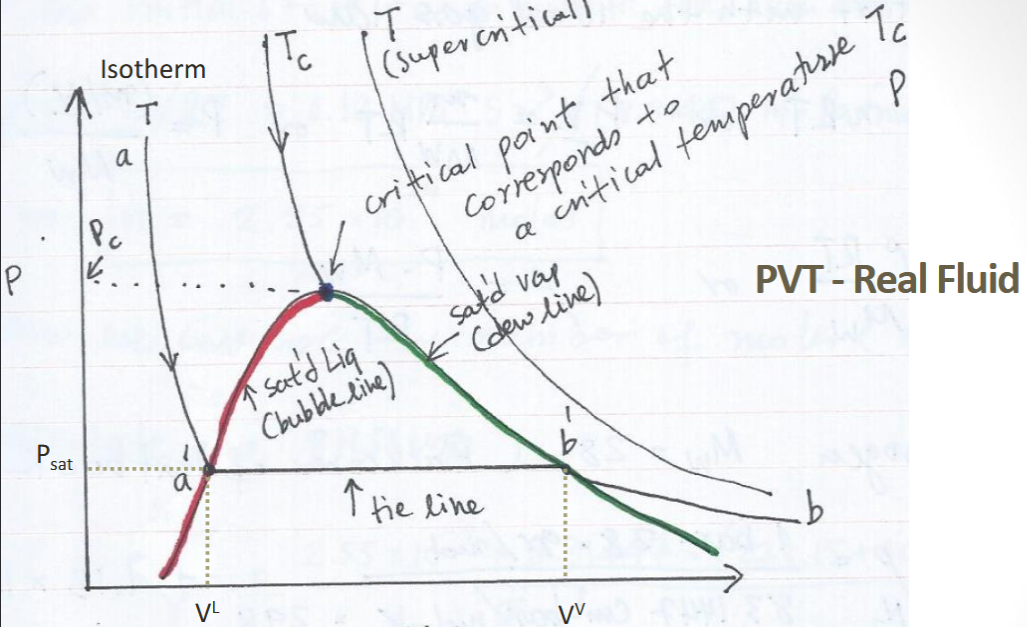 Isotherm
T
a
T_c
T
(supercritical)
critical point that
corresponds to
a critical temperature T_c
P
P_c
P
PVT - Real Fluid
sat'd vap
(dew line)
↑ sat'd Liq
(bubble line)
P_sat
a'
b'
↑ tie line
b
V^L
V^V